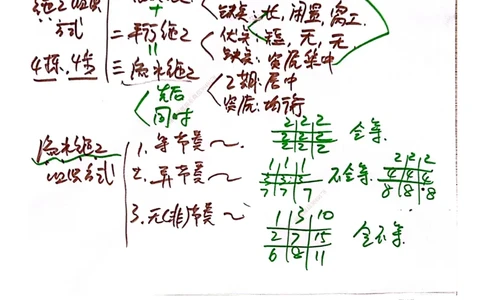 缺点:长,闲置,窝工.
施工组织
方式
二平行施工
优点:短,无,无.
缺点:资源集中
4栋,4步
三流水施工
工期:居中
资源:均衡
先后
同时
流水施工
组织方式
1.等节奏~.
2 2 2
2 2 2
2 2 2
全等.
2.异节奏~
1 1 1
3 3 3
7 7 7
不全等.
2 2 2
4 4 4
8 8 8
3.无(非)节奏~
1 3 10
2 7 15
6 9 11
全不等.